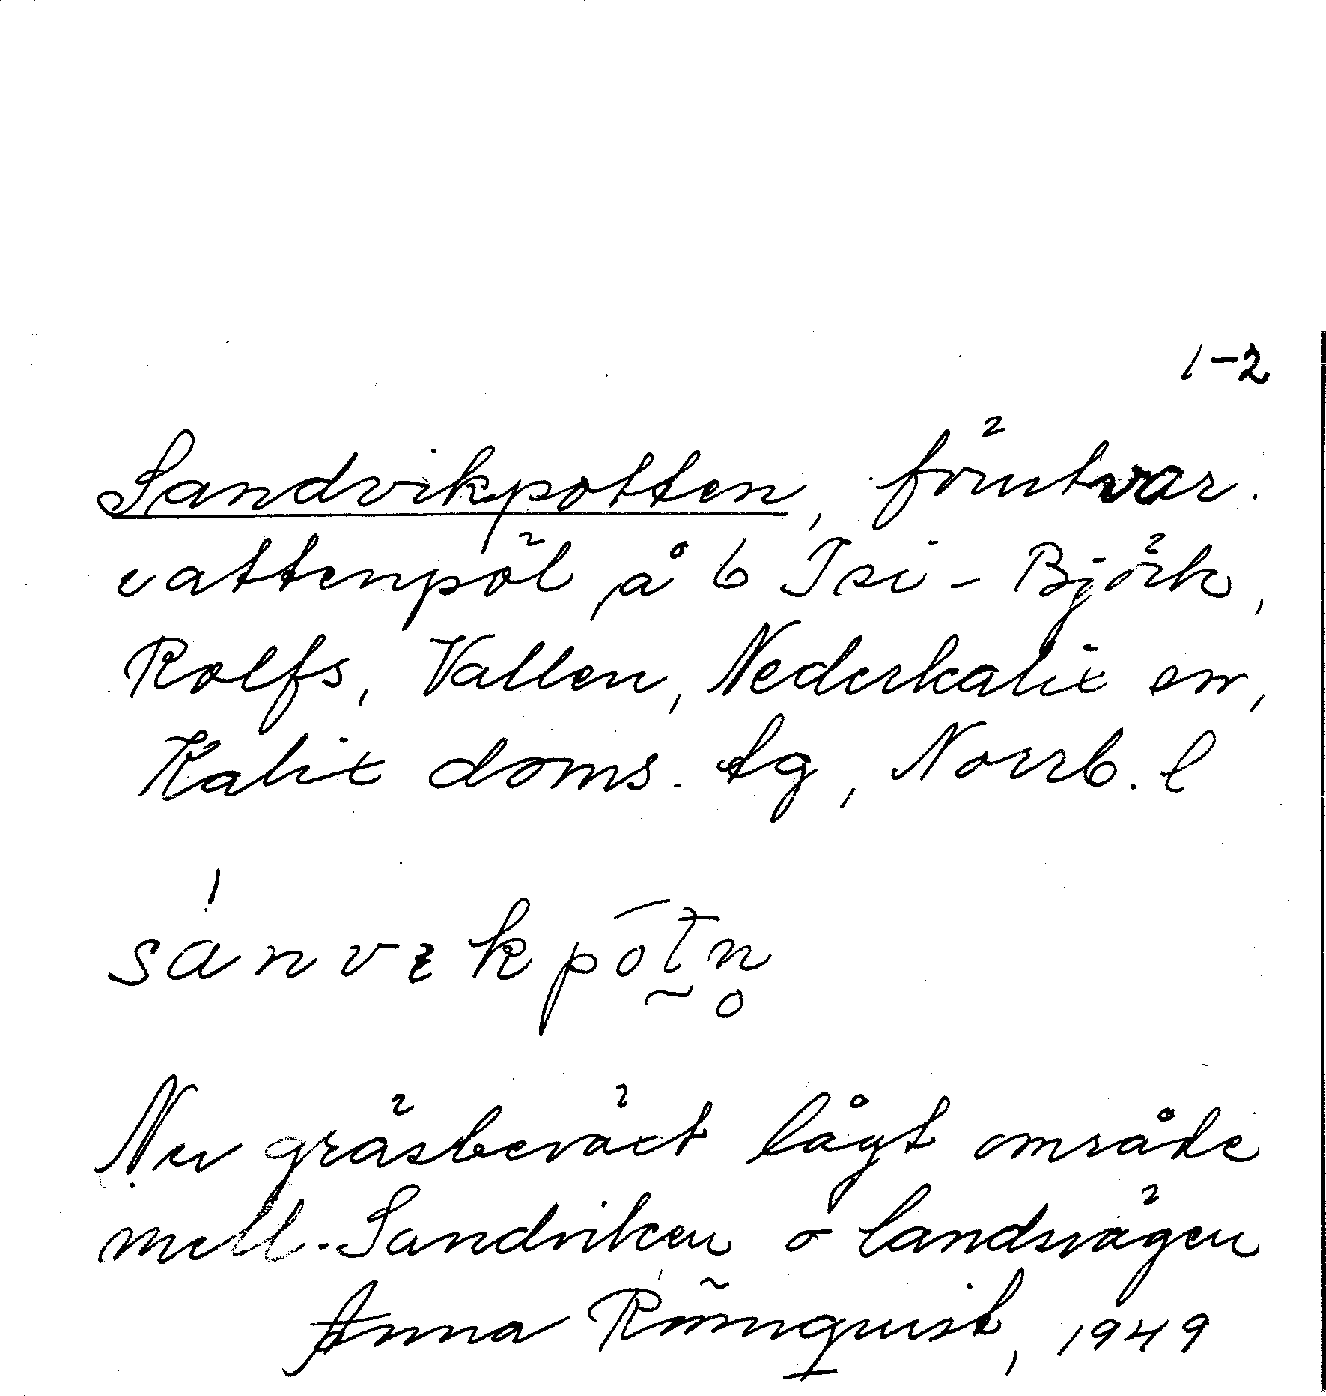 1-2
Sandvikpotten, förut var.
vattenpöl å 6 Isi - Björk,
Rolfs, Vallen, Nederkalix sn,
Kalix doms. tg, Norrb. l
Nu gräsbeväxt lågt område
mell. Sandviken o landsvägen
Anna Rönnquist, 1949